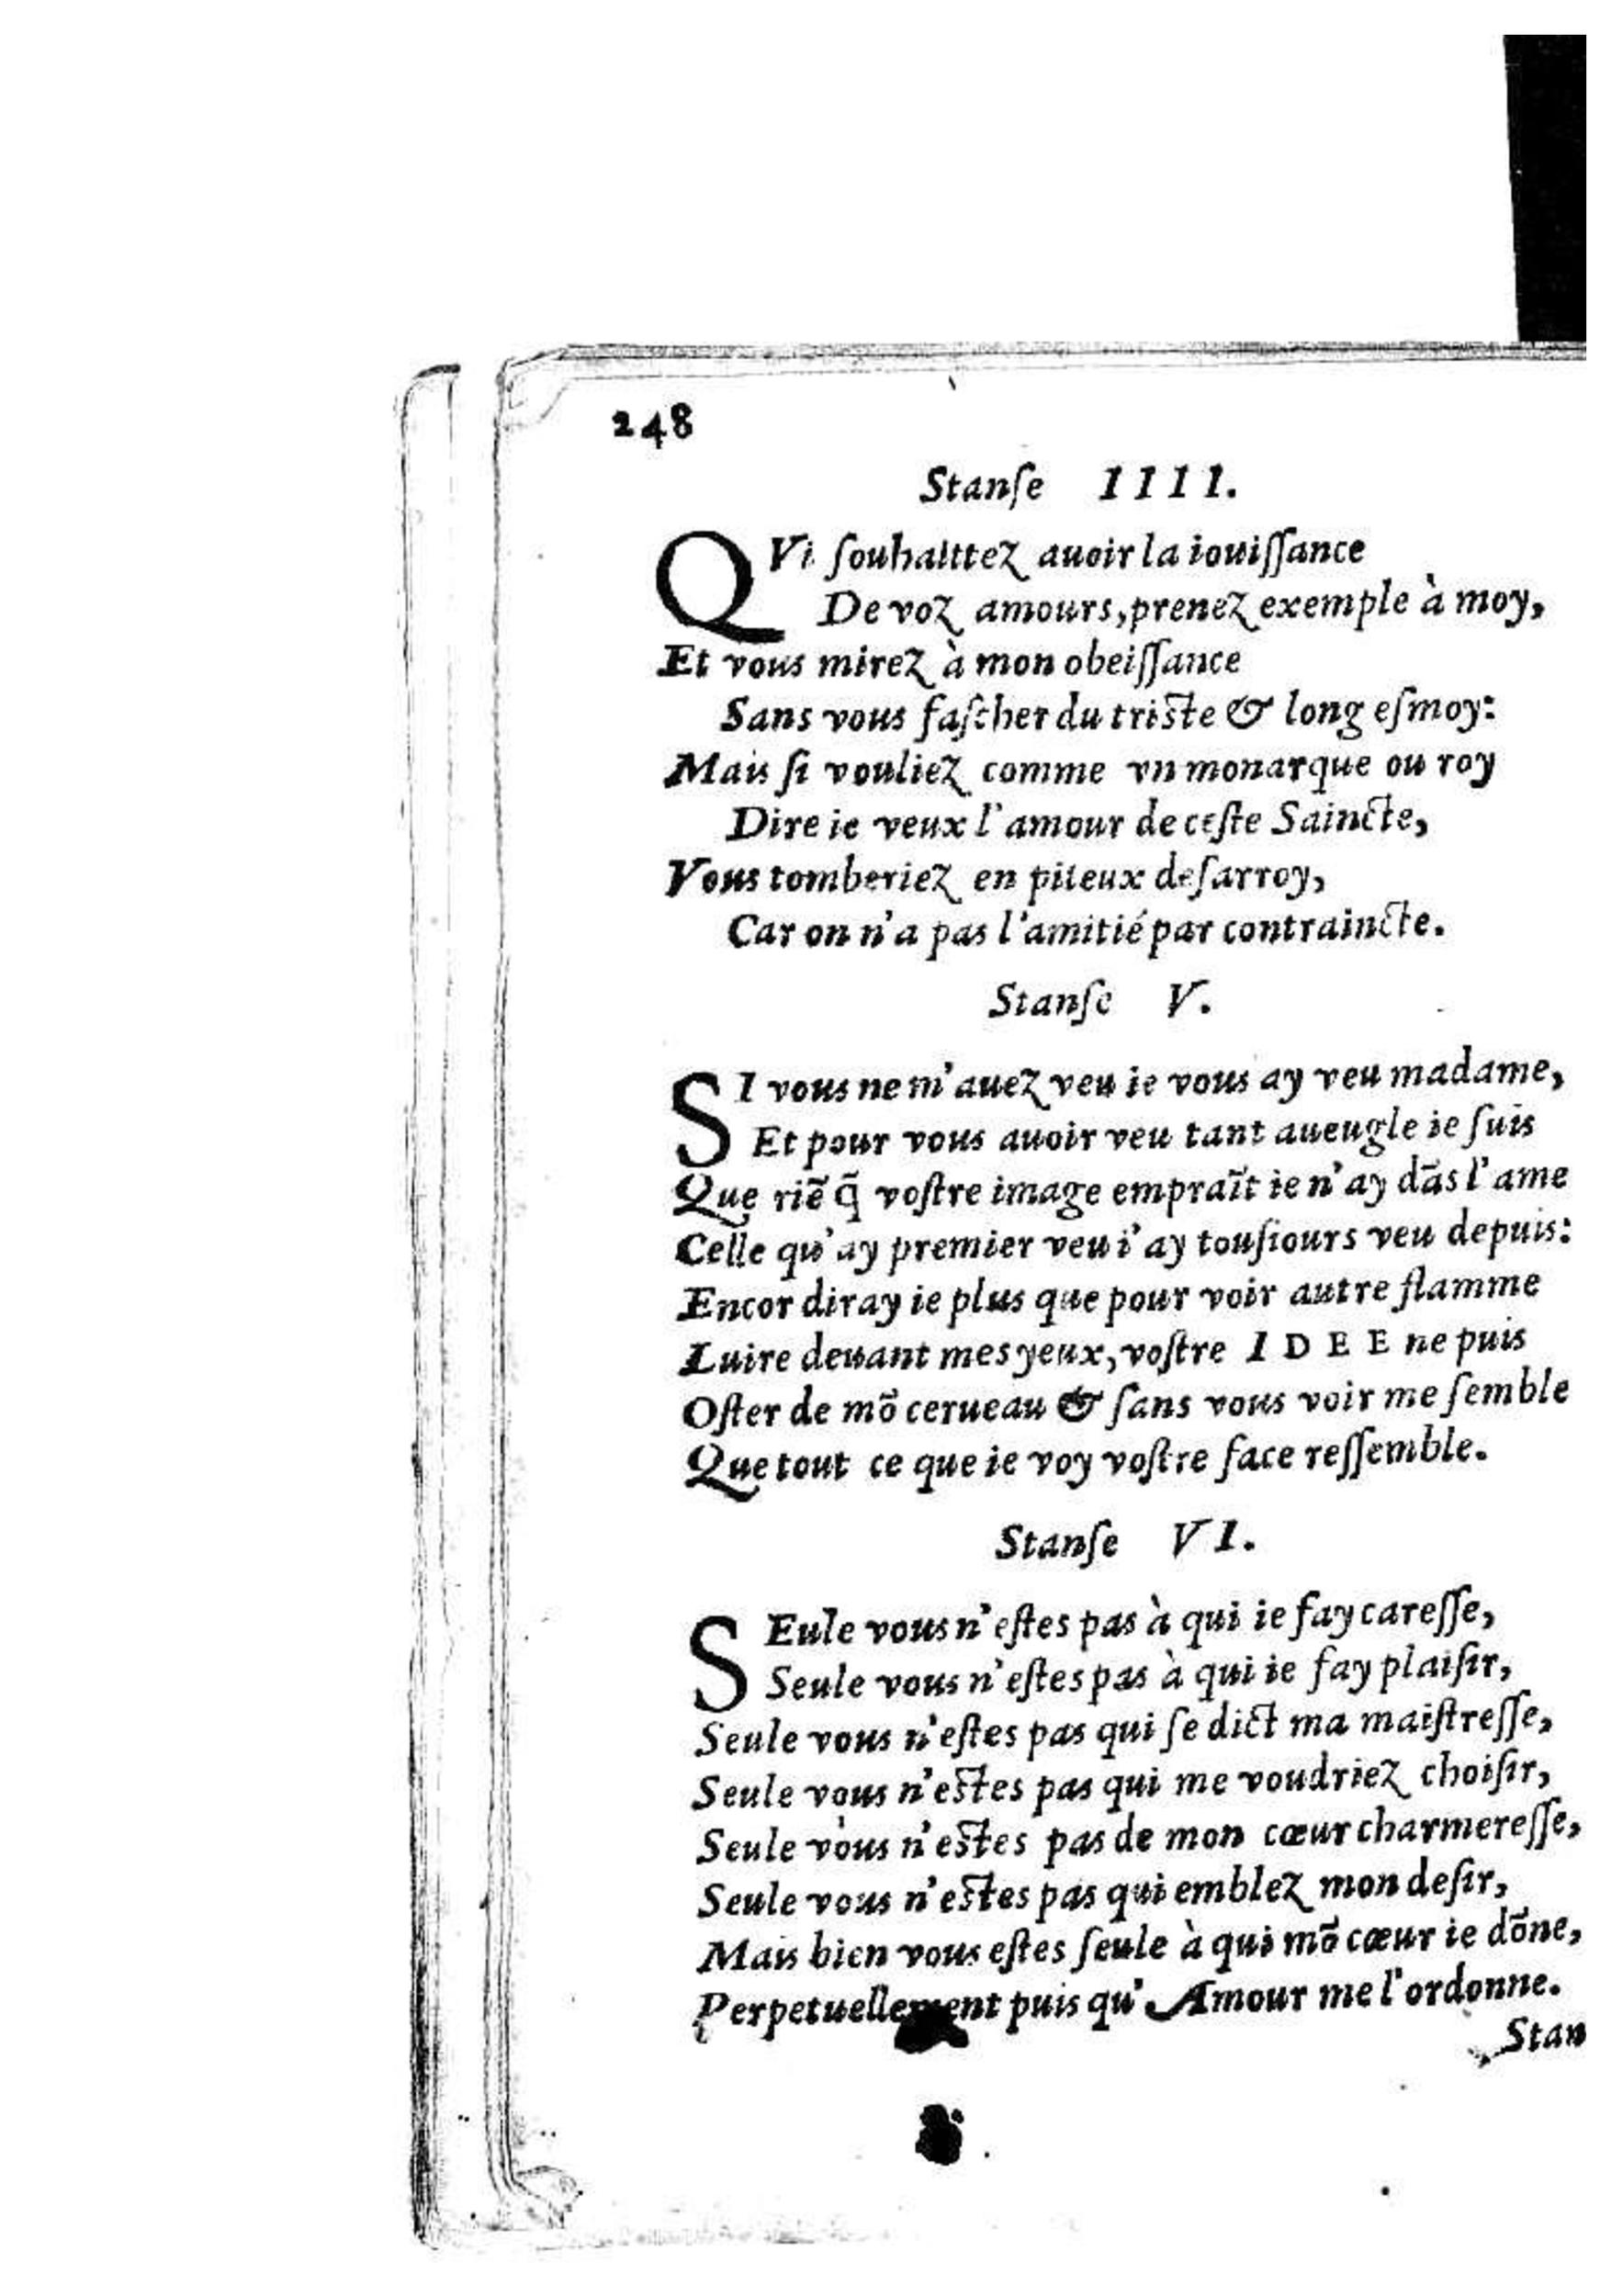 248
Stanſe IIII.
QVi ſouhaittez auoir la iouiſſance
De voz amours, prenez exemple à moy,
Et vous mirez à mon obeiſſance
Sans vous faſcher du triſte & long eſmoy:
Mais ſi vouliez comme vn monarque ou roy
Dire ie veux l'amour de ceſte Saincte,
Vous tomberiez en piteux deſarroy,
Car on n'a pas l'amitié par contraincte.
Stanſe V.
SI vous ne m'auez veu ie vous ay veu madame,
Et pour vous auoir veu tant aueugle ie ſuis
Que riẽ q̃ voſtre image empraĩt ie n'ay dãs l'ame
Celle qu'ay premier veu i'ay touſiours veu depuis:
Encor diray ie plus que pour voir autre flamme
Luire deuant mes yeux, voſtre IDEE ne puis
Oſter de mõ cerueau & ſans vous voir me ſemble
Que tout ce que ie voy voſtre face reſſemble.
Stanſe VI.
SEule vous n'eſtes pas à qui ie fay careſſe,
Seule vous n'eſtes pas à qui ie fay plaiſir,
Seule vous n'eſtes pas qui ſe dict ma maiſtreſſe,
Seule vous n'eſtes pas qui me voudriez choiſir,
Seule vous n'eſtes pas de mon cœur charmereſſe,
Seule vous n'eſtes pas qui emblez mon deſir,
Mais bien vous eſtes ſeule à qui mõ cœur ie dõne,
Perpetuellement puis qu'Amour me l'ordonne.
Stan